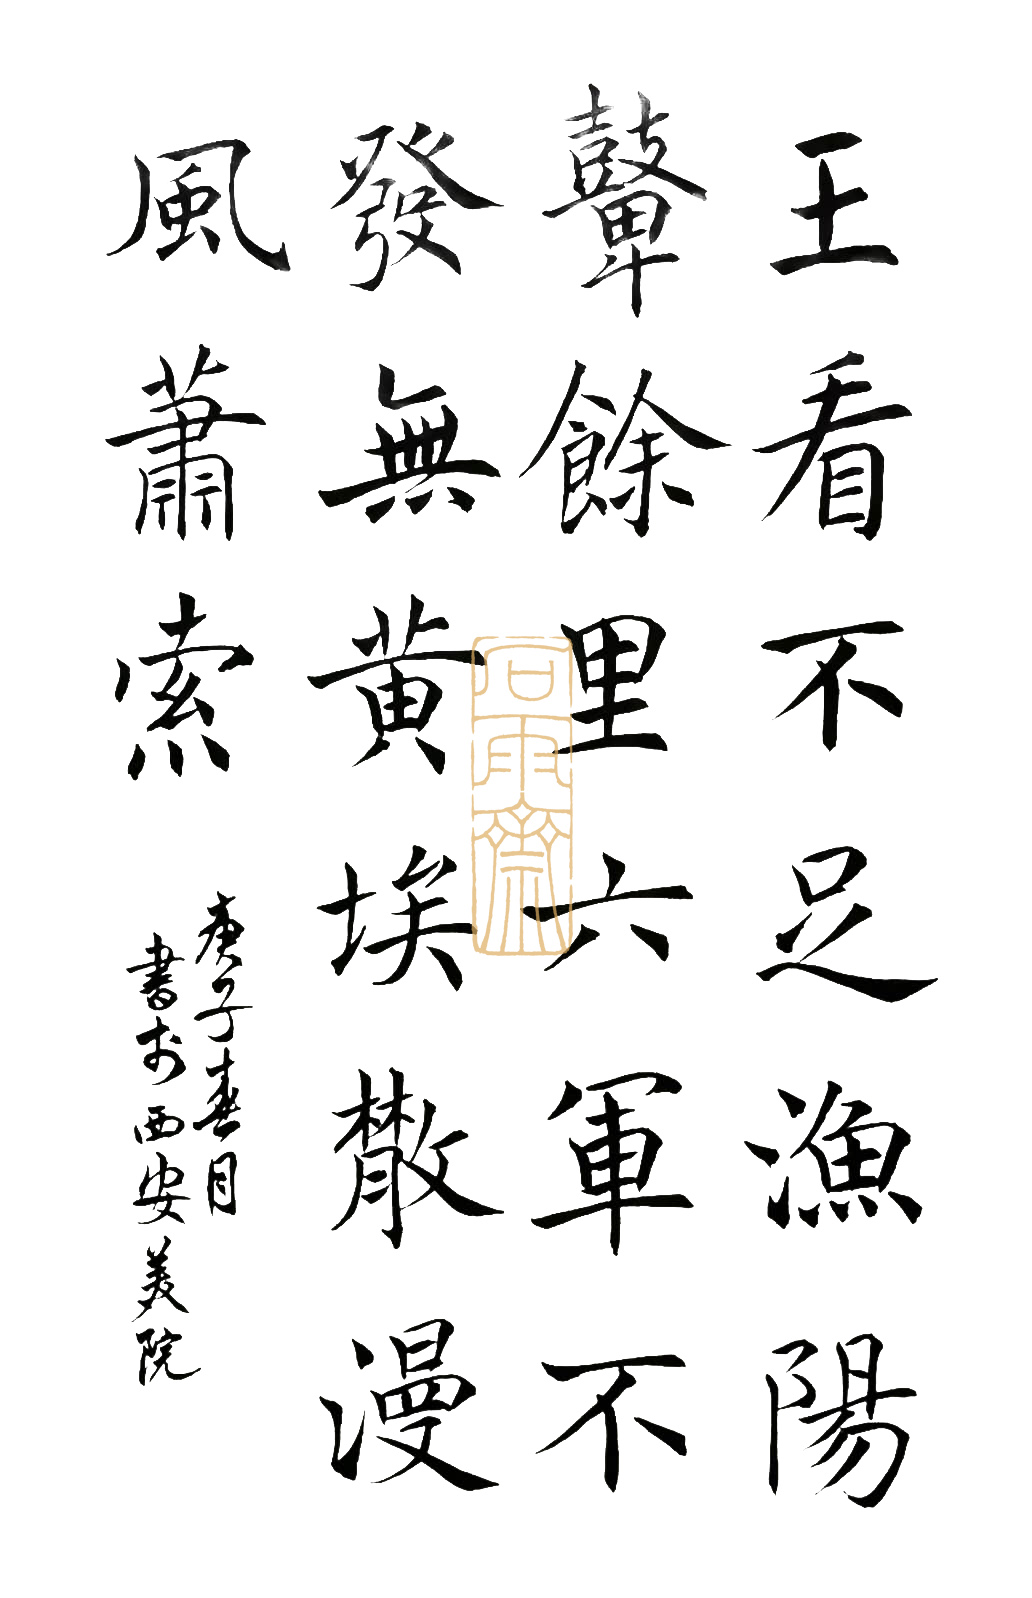 王看不足漁陽
鼙餘里六軍不
發無黄埃散漫
風蕭索
庚子春月
書於西安美院
石雨齋